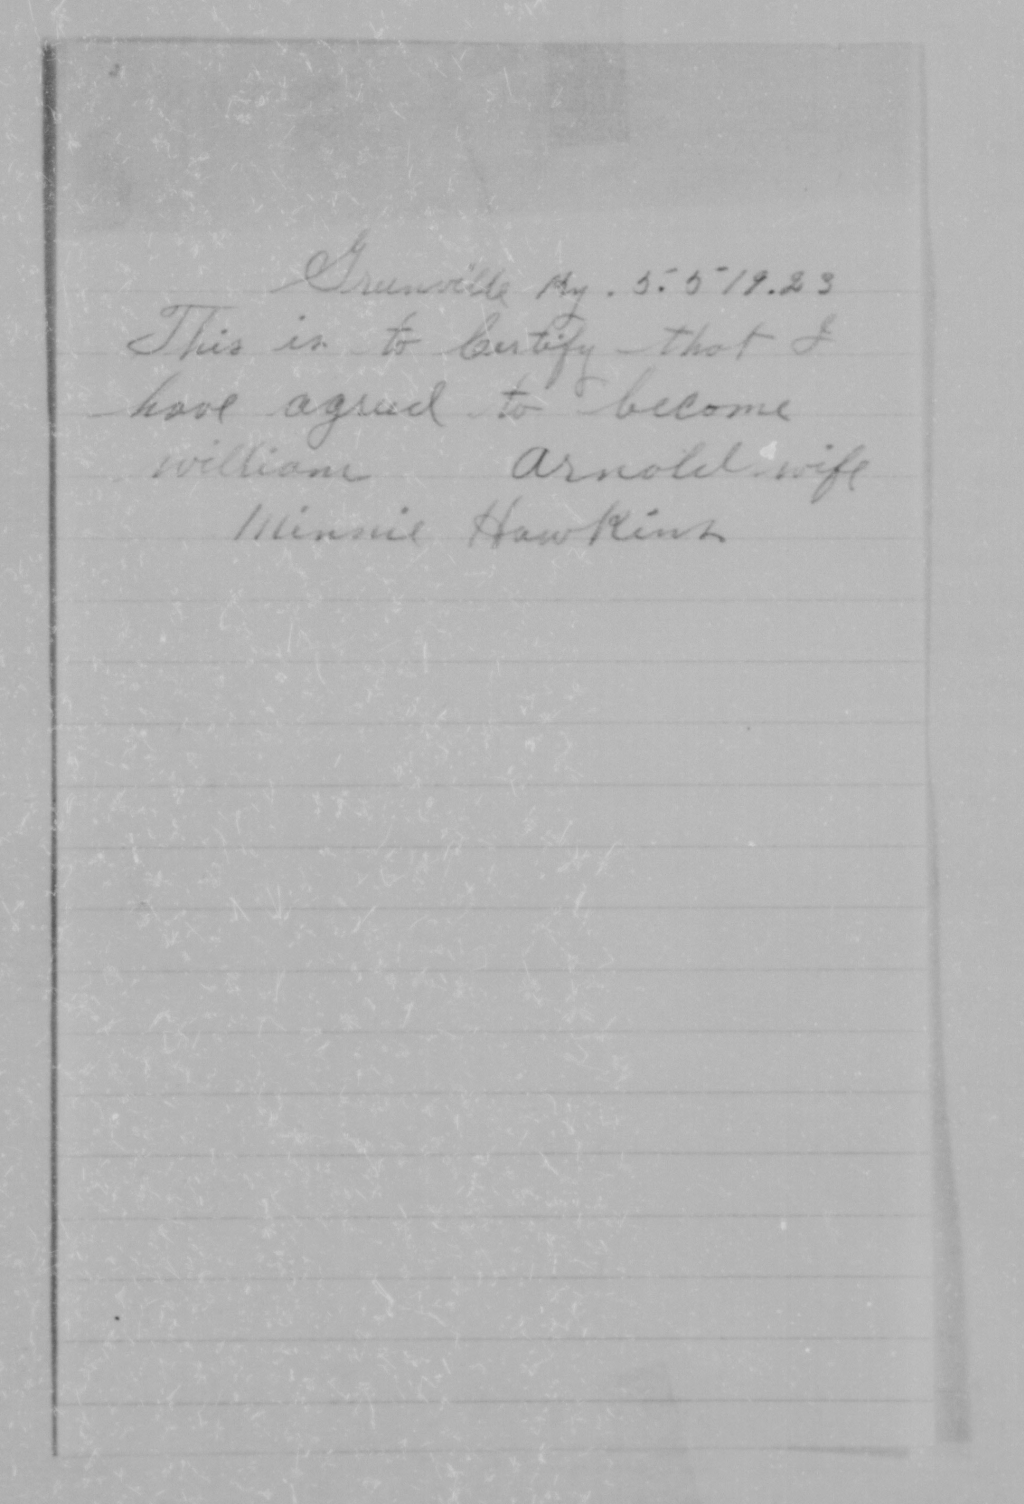 Greenville Ky. 5.5 19.23
This is to Certify that I
have agreed to become
william Arnold wife
Minnie Hawkins